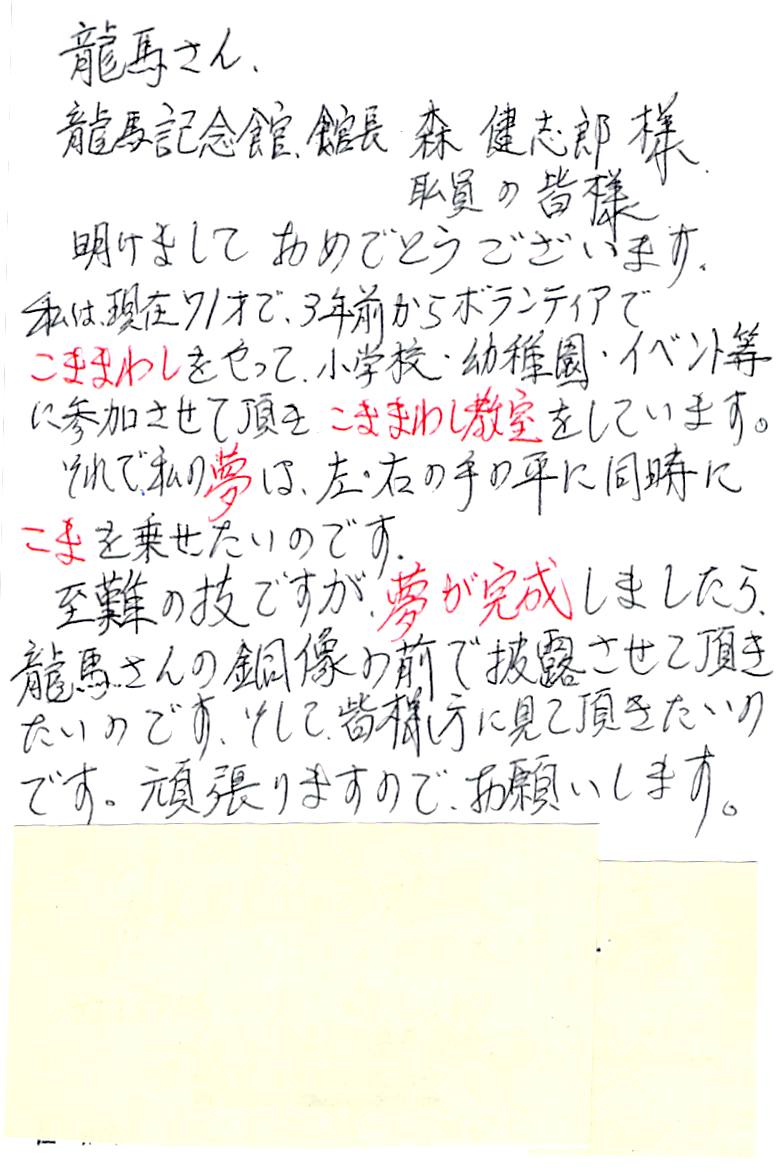 龍馬さん、
龍馬記念館、館長 森 健志郎 様、
職員の皆様
明けまして おめでとうございます、
私は、現在71才で、3年前からボランティアで
こままわしをやって、小学校・幼稚園・イベント等
に参加させて頂き こままわし教室をしています。
それで、私の夢は、左・右の手の平に同時に
こまを乗せたいのです、
至難の技ですが、夢が完成しましたら、
龍馬さんの銅像の前で披露させて頂き
たいのです、そして、皆様方に見て頂きたいの
です。頑張りますので、お願いします。